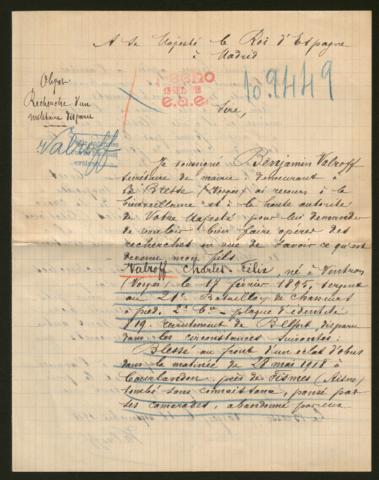 A Sa Majesté le Roi d'Espagne
à Madrid
Objet
Recherche d'un
militaire disparu
Valroff
10.9449
Sire,
Je soussigné Benjamin Valroff
secrétaire de mairie, demeurant à
La Bresse (Vosges) ai recours à la
bienveillance et à la haute autorité
de Votre Majesté pour lui demander
de vouloir bien faire opérer des
recherches en vue de savoir ce qu'est
devenu mon fils
Valroff Charles Félix né à Ventron
(Vosges) le 17 février 1895, sergent
au 21e Bataillon de Chasseurs
à pied, 2e Cie - plaque d'identité
819 recrutement de Belfort, disparu
dans les circonstances suivantes:
Blessé au front d'un éclat d'obus
dans la matinée du 28 mai 1918 à
Courlandon près de Fismes (Aisne)
tombé sans connaissance, pansé par
ses camarades, abandonné parce